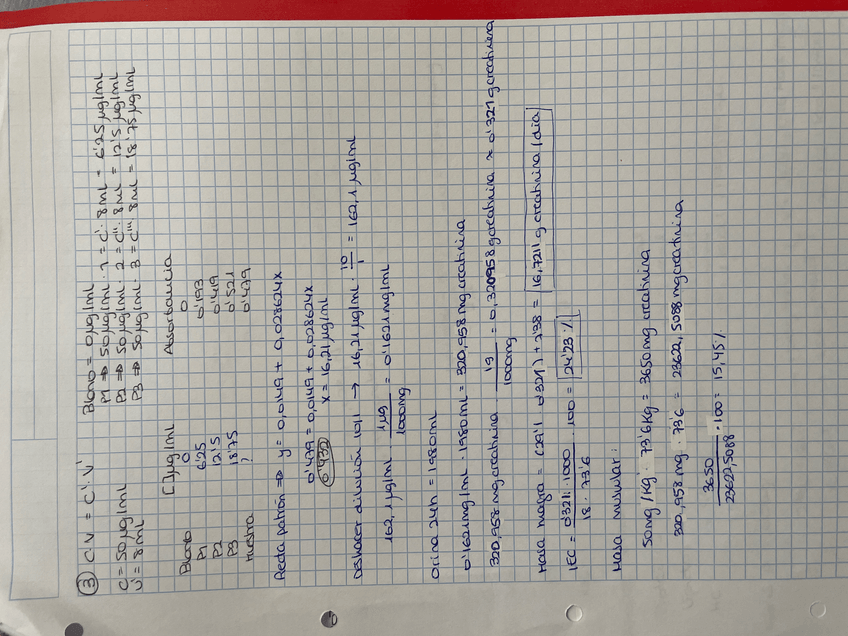 ③ C·V = C'·V'
Blanco = 0 µg/mL
C = 50 µg/mL
P1 ⇒ 50 µg/mL · 1 = C'· 8 mL = 6'25 µg/mL
V' = 8 mL
P2 ⇒ 50 µg/mL · 2 = C''· 8 mL = 12'5 µg/mL
P3 ⇒ 50 µg/mL · 3 = C''' 8 mL = 18'75 µg/mL
[ ] µg/mL Absorbancia
Blanco 0 0
P1 6'25 0'193
P2 12'5 0'419
P3 18'75 0'521
Muestra ? 0'479
Recta patrón ⇒ y = 0,0149 + 0,028624x
0'479 = 0,0149 + 0,028624x
0'932 x = 16,21 µg/mL
Deshacer dilución 10,1 → 16,21 µg/mL · 10/1 = 162,1 µg/mL
162,1 µg/mL · 1µg/1000mg = 0'1621 mg/mL
Orina 24h = 1980mL
0'1621mg/mL · 1980mL = 320,958 mg creatinina
320,958 mg creatinina · 1g/1000mg = 0,320958g creatinina ≈ 0'321 g creatinina
Masa magra = (29'1 · 0'321) + 7'38 = 16,7211 g creatinina / día
IEC = 0'321 · 1000 / 18 · 73'6 · 100 = 24'23 %
Masa muscular:
50mg/kg · 73'6Kg = 3650mg creatinina
320,958 mg · 73'6 = 23622,5088 mg creatinina
3650/23622,5088 · 100 = 15,45%